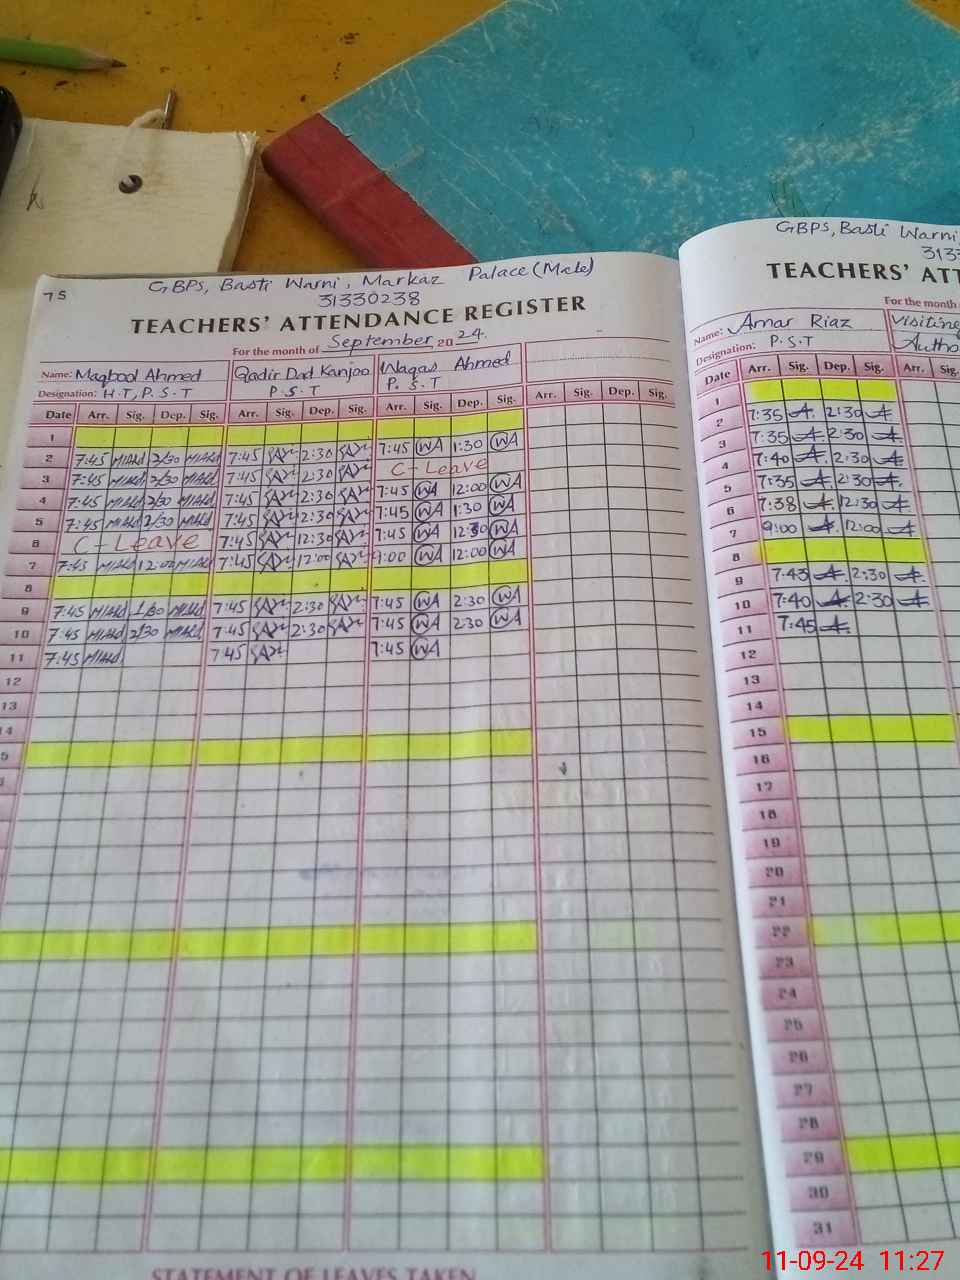 75
GBPS, Basti Warni, Markaz Palace (Male)
31330238
TEACHERS' ATTENDANCE REGISTER
For the month of September 2024.
Name: Maqbool Ahmed Qadir Dad Kanjoo Waqas Ahmed
Designation: H.T, P.S.T P.S.T P.S.T
Date Arr. Sig. Dep. Sig. Arr. Sig. Dep. Sig. Arr. Sig. Dep. Sig. Arr. Sig. Dep. Sig.
1
2 7:45 2/30 7:45 2:30 7:45 WA 1:30 WA
3 7:45 2/30 7:45 2:30 C-Leave
4 7:45 2/30 7:45 2:30 7:45 WA 12:00 WA
5 7:45 2/30 7:45 2:30 7:45 WA 1:30 WA
6 C-Leave 7:45 12:30 7:45 WA 12:30 WA
7 7:45 12:00 7:45 12:00 9:00 WA 12:00 WA
8
9 7:45 1/30 7:45 2:30 7:45 WA 2:30 WA
10 7:45 2/30 7:45 2:30 7:45 WA 2:30 WA
11 7:45 7:45 7:45 WA
12
13
14
5
STATEMENT OF LEAVES TAKEN
GBPS, Basti Warni,
3133
TEACHERS' ATT
For the month
Name: Amar Riaz Visiting
Designation: P.S.T Autho
Date Arr. Sig. Dep. Sig. Arr. Sig.
1
2 7:35 A. 2:30 A.
3 7:35 A. 2:30 A.
4 7:40 A. 2:30 A.
5 7:35 A. 2:30 A.
6 7:38 A. 12:30 A.
7 9:00 A. 12:00 A.
8
9 7:43 A. 2:30 A.
10 7:40 A. 2:30 A.
11 7:45 A.
12
13
14
15
16
17
18
19
20
21
22
23
24
25
26
27
28
29
30
31
11-09-24 11:27